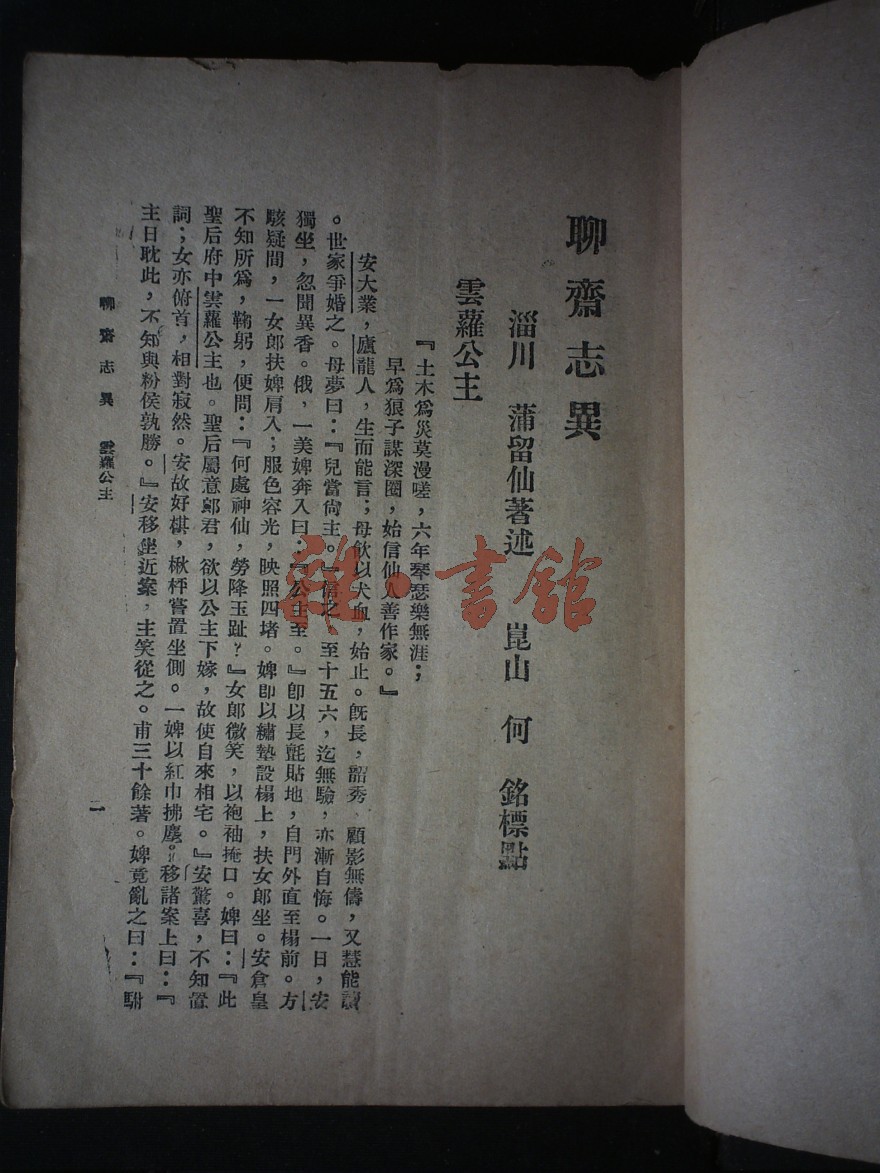 聊齋志異
淄川　蒲留仙著述　　崑山　何　銘標點
雲蘿公主
『土木爲災莫漫嗟，六年琴瑟樂無涯；
早爲狼子謀深圈，始信仙人善作家。』
安大業，廬龍人，生而能言；母飲以犬血，始止。旣長，韶秀，顧影無儔，又慧能讀
。世家爭婚之。母夢曰：『兒當尙主。』信之。至十五六，迄無驗，亦漸自悔。一日，安
獨坐，忽聞異香。俄，一美婢奔入曰：『公主至。』卽以長氈貼地，自門外直至榻前。方
駭疑間，一女郞扶婢肩入；服色容光，映照四堵。婢卽以繡墊設榻上，扶女郞坐。安倉皇
不知所爲，鞠躬，便問：『何處神仙，勞降玉趾？』女郞微笑，以袍袖掩口。婢曰：『此
聖后府中雲蘿公主也。聖后屬意郞君，欲以公主下嫁，故使自來相宅。』安驚喜，不知置
詞；女亦俯首，相對寂然。安故好棋，楸枰嘗置坐側。一婢以紅巾拂塵。移諸案上曰：『
主日耽此，不知與粉侯孰勝。』安移坐近案，主笑從之。甫三十餘著。婢竟亂之曰：『駙
聊齋志異　雲蘿公主
雜·書館